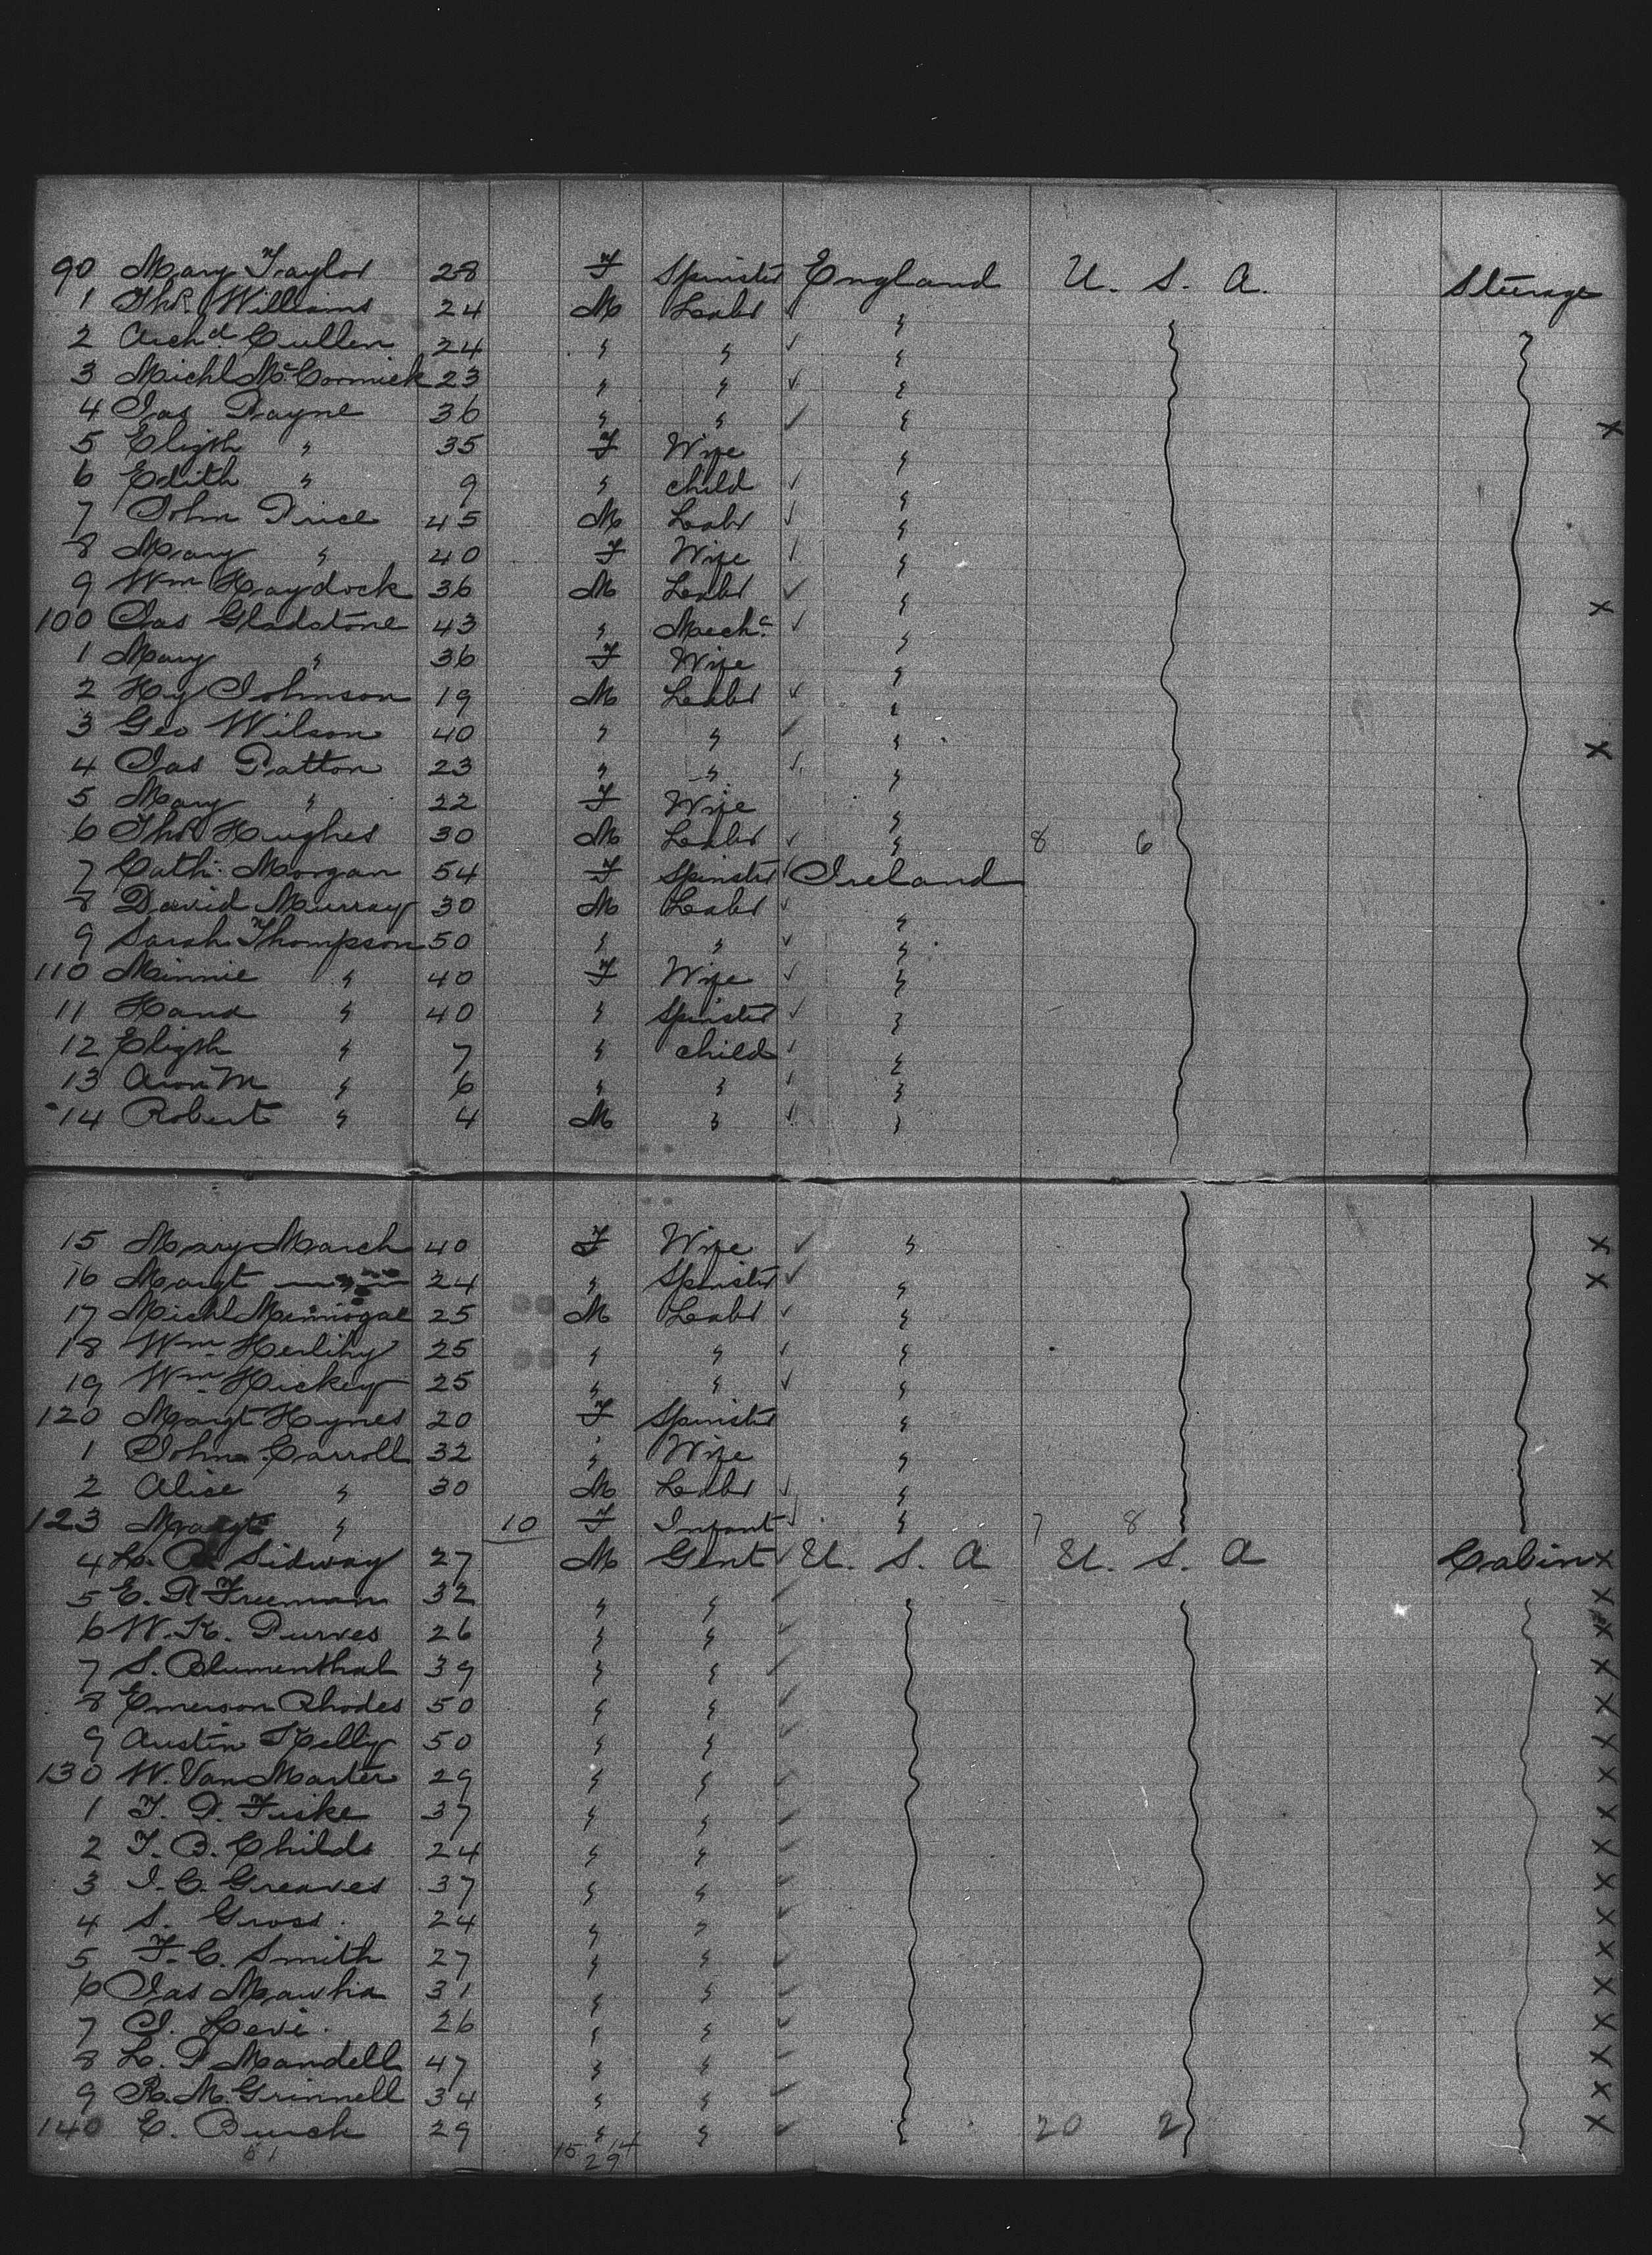 90 Mary Taylor 28 F Spinster England U. S. A. Steerage
1 Thos Williams 24 M Labr ✓ "
2 Archd Cullen 24 " " ✓ "
3 Michl McCormick 23 " " ✓ "
4 Jas Payne 36 " " ✓ " x
5 Elizth " 35 F Wife "
6 Edith " 9 " child ✓ "
7 John Price 45 M Labr ✓ "
8 Mary " 40 F Wife ✓ "
9 Wm Haydock 36 M Labr ✓ " x
100 Jas Gladstone 43 " Mechc ✓ "
1 Mary " 36 F Wife "
2 Hy Johnson 19 M Labr ✓ "
3 Geo Wilson 40 " " ✓ " x
4 Jas Patton 23 " " ✓ "
5 Mary " 22 F Wife "
6 Thos Hughes 30 M Labr ✓ " 8 6
7 Cath: Morgan 54 F Spinster ✓ Ireland
8 David Murray 30 M Labr ✓ "
9 Sarah Thompson 50 " " ✓ "
110 Minnie " 40 F Wife ✓ "
11 Hana " 40 " Spinster ✓ "
12 Elizth " 7 " child ✓ "
13 Ann M " 6 " " ✓ "
14 Robert " 4 M " ✓ "
15 Mary March 40 F Wife ✓ " x
16 Margt " 24 " Spinster ✓ " x
17 Michl 25 M Labr ✓ "
18 Wm Herlihy 25 " " ✓ "
19 Wm Hickey 25 " " ✓ "
120 Margt Hynes 20 F Spinster "
1 John Carroll 32 " Wife "
2 Alice " 30 M Labr ✓ "
123 Margt " 10 F Infant ✓ " 7 8
4 Sidway 27 M Gent ✓ U. S. A U. S. A Cabin x
5 E. R Freeman 32 " " ✓ x
6 W. K. Purves 26 " " ✓ x
7 S. Blumenthal 39 " " ✓ x
8 Emerson Rhodes 50 " " ✓ x
9 Austin Kelly 50 " " ✓ x
130 W. Van Marter 29 " " ✓ x
1 F. P. Fiske 37 " " ✓ x
2 F. B. Childs 24 " " ✓ x
3 J. C. Greaves 37 " " ✓ x
4 S. Gross. 24 " " ✓ x
5 F. C. Smith 27 " " ✓ x
6 Jas Mawhia 31 " " ✓ x
7 J. Levi. 26 " " ✓ x
8 L. P Mandell 47 " " ✓ x
9 R. M. Grinnell 34 " " ✓ x
140 E. Burch 29 " " ✓ 20 2 x
51 15 14
29